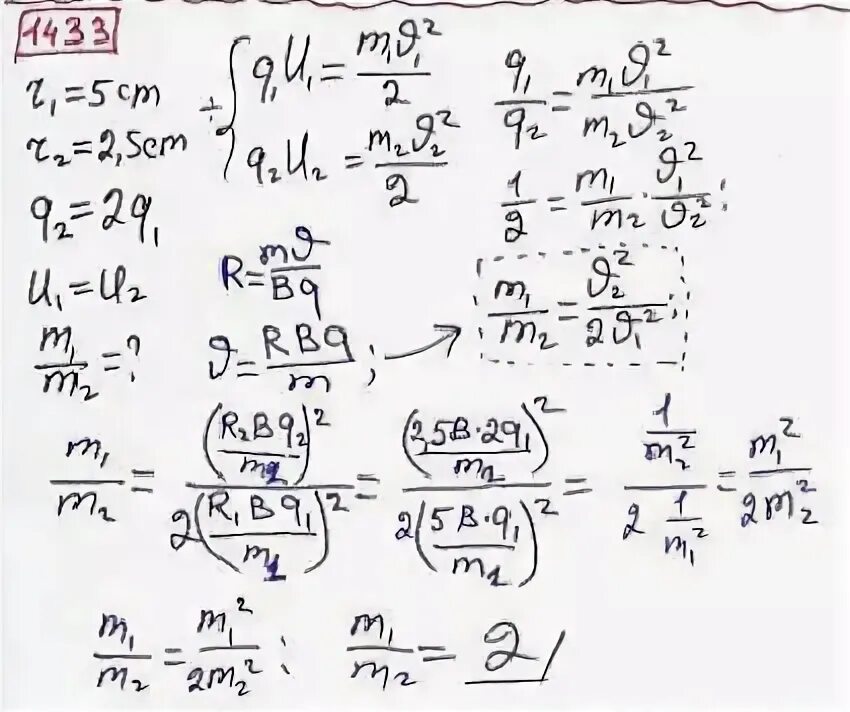 1433
τ₁=5cm
τ₂=2,5cm
q₂=2q₁
U₁=U₂
m₁/m₂=?
÷ { q₁U₁ = m₁ϑ₁²/2
q₂U₂ = m₂ϑ₂²/2
R = mϑ/Bq
ϑ = RBq/m ; →
q₁/q₂ = m₁ϑ₁²/m₂ϑ₂²
1/2 = m₁/m₂ · ϑ₁²/ϑ₂² ;
m₁/m₂ = ϑ₂²/2ϑ₁² ;
m₁/m₂ = (R₂Bq₂/m₂)²/2(R₁Bq₁/m₁)² = (2,5B·2q₁/m₂)²/2(5B·q₁/m₁)² = (1/m₂²)/(2 1/m₁²) = m₁²/2m₂²
m₁/m₂ = m₁²/2m₂² ; m₁/m₂ = 2/